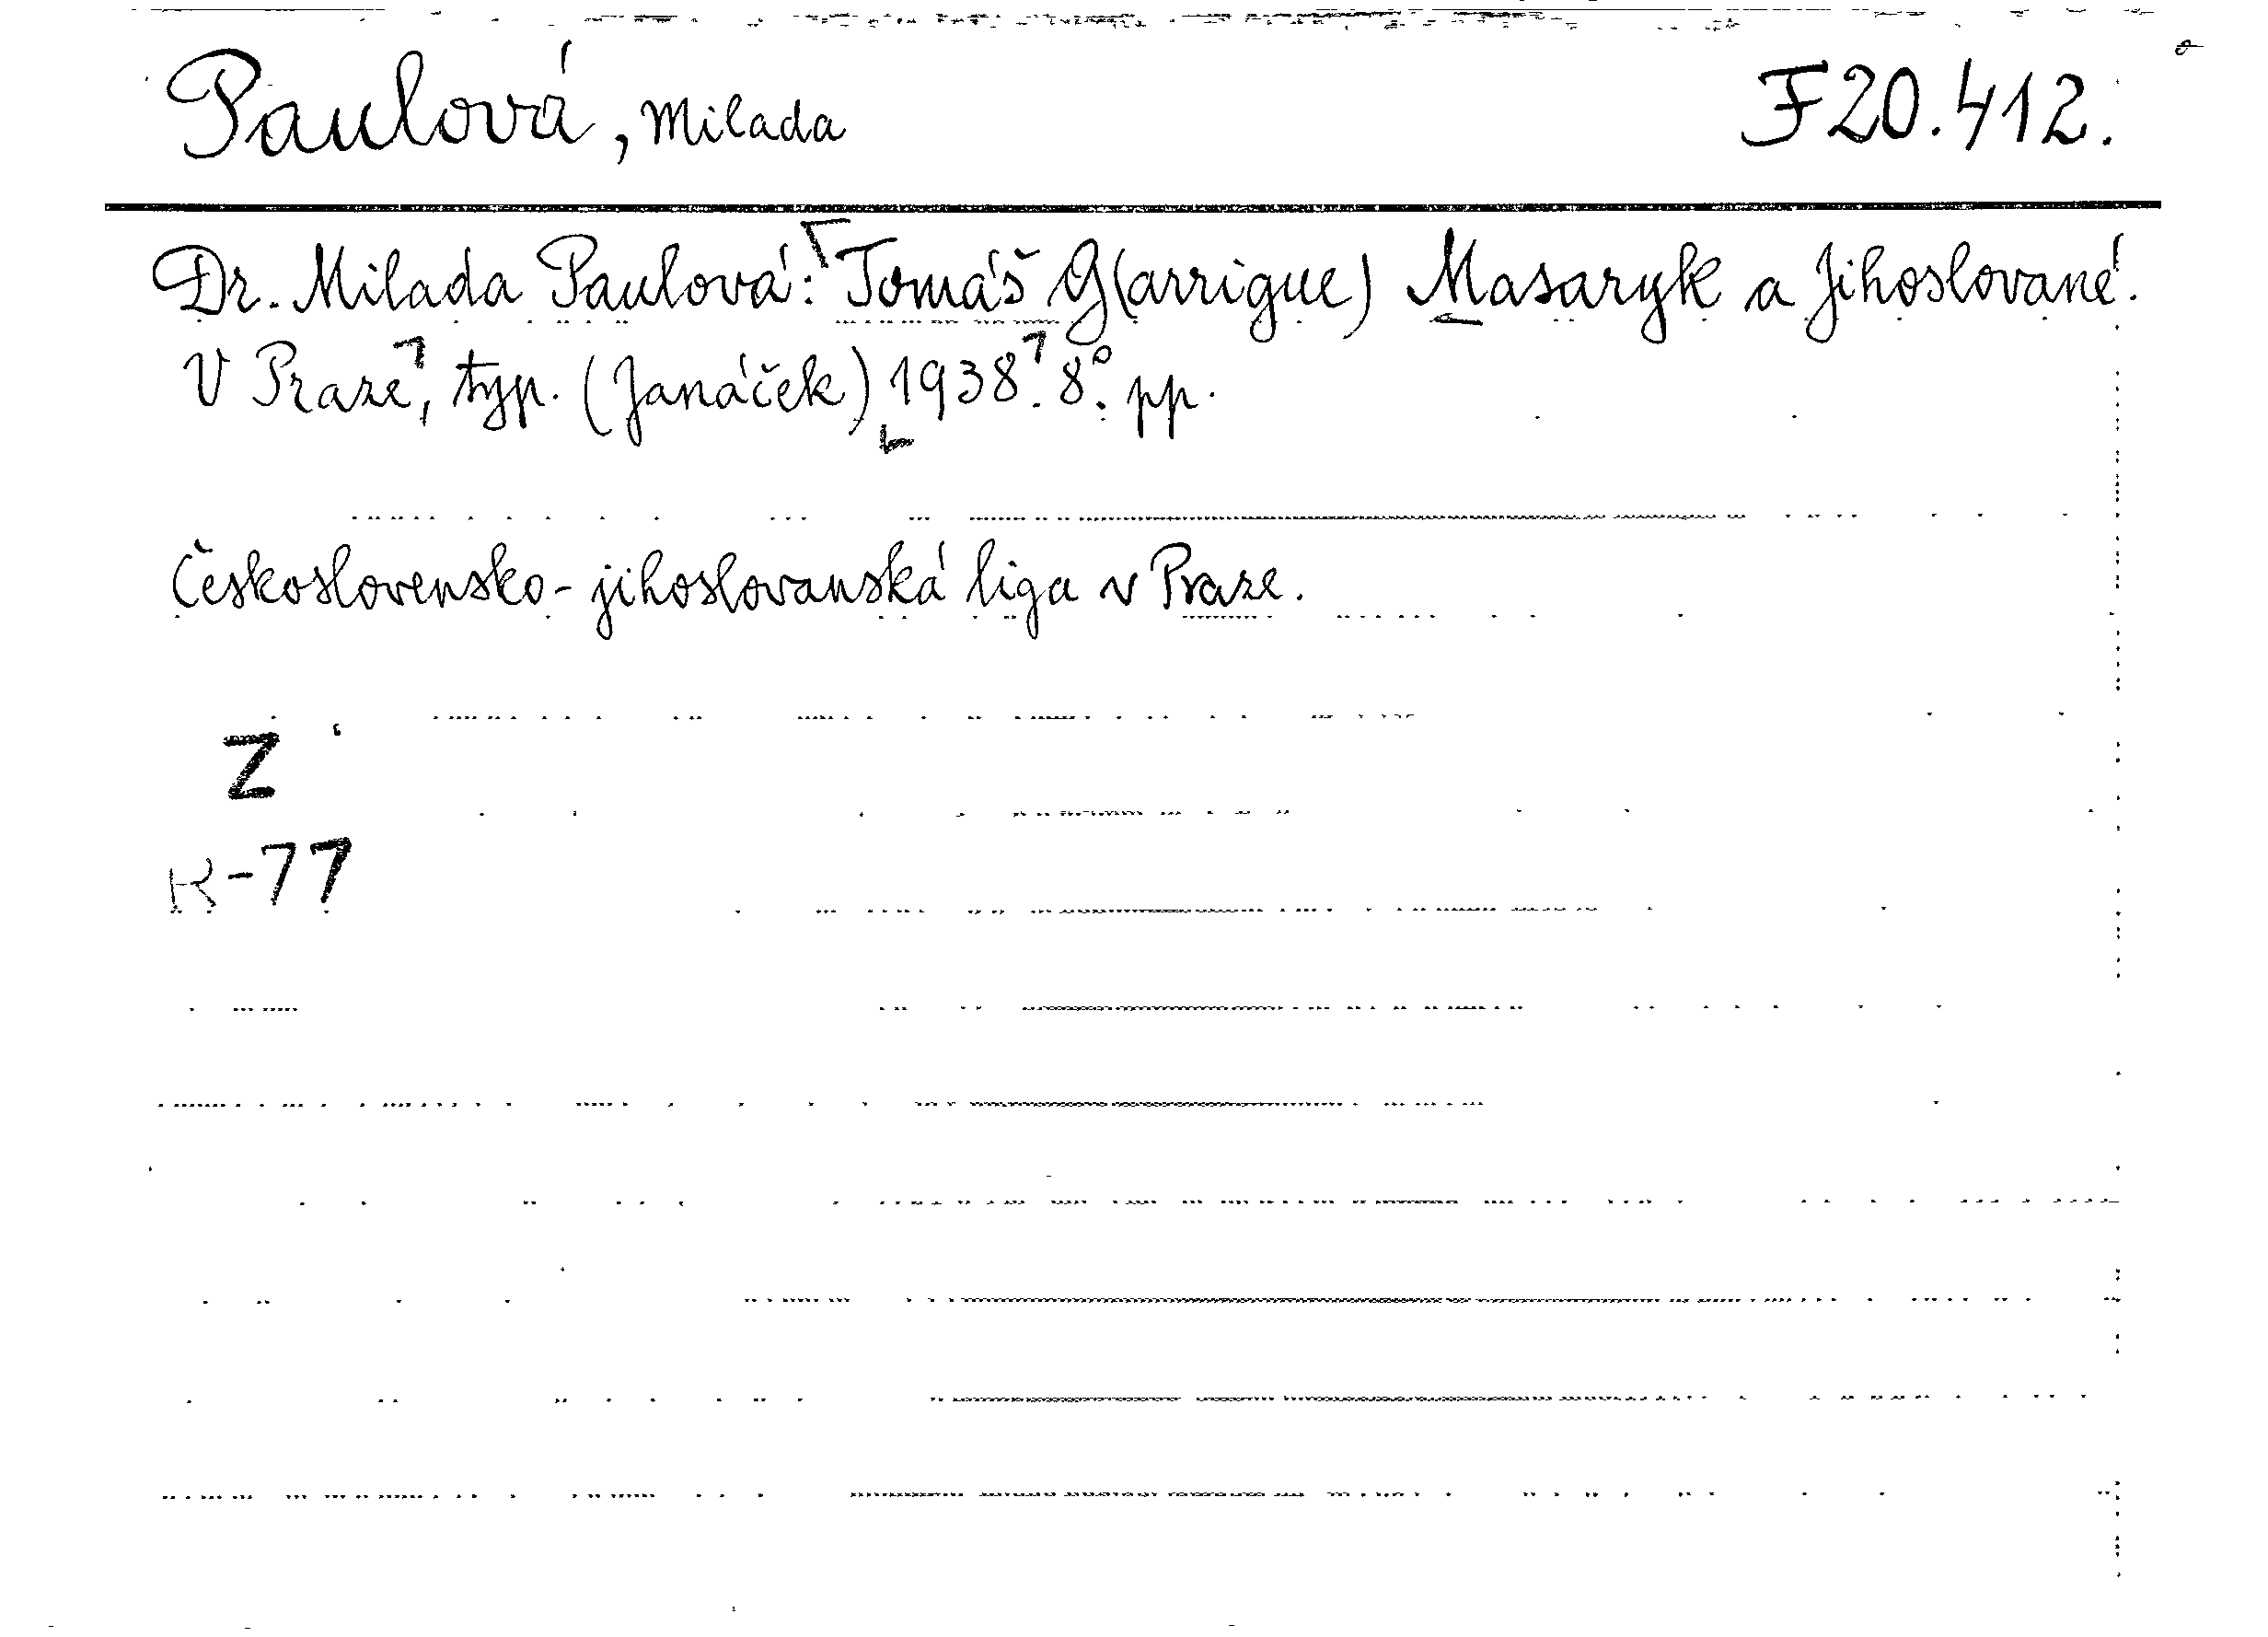 Paulová, Milada F20.412.
Dr. Milada Paulová: Tomáš G(arrigue) Masaryk a Jihoslované.
V Praze, typ. (Janáček) 1938. 8°. pp.
Československo-jihoslovanská liga v Praze.
Z
K-77